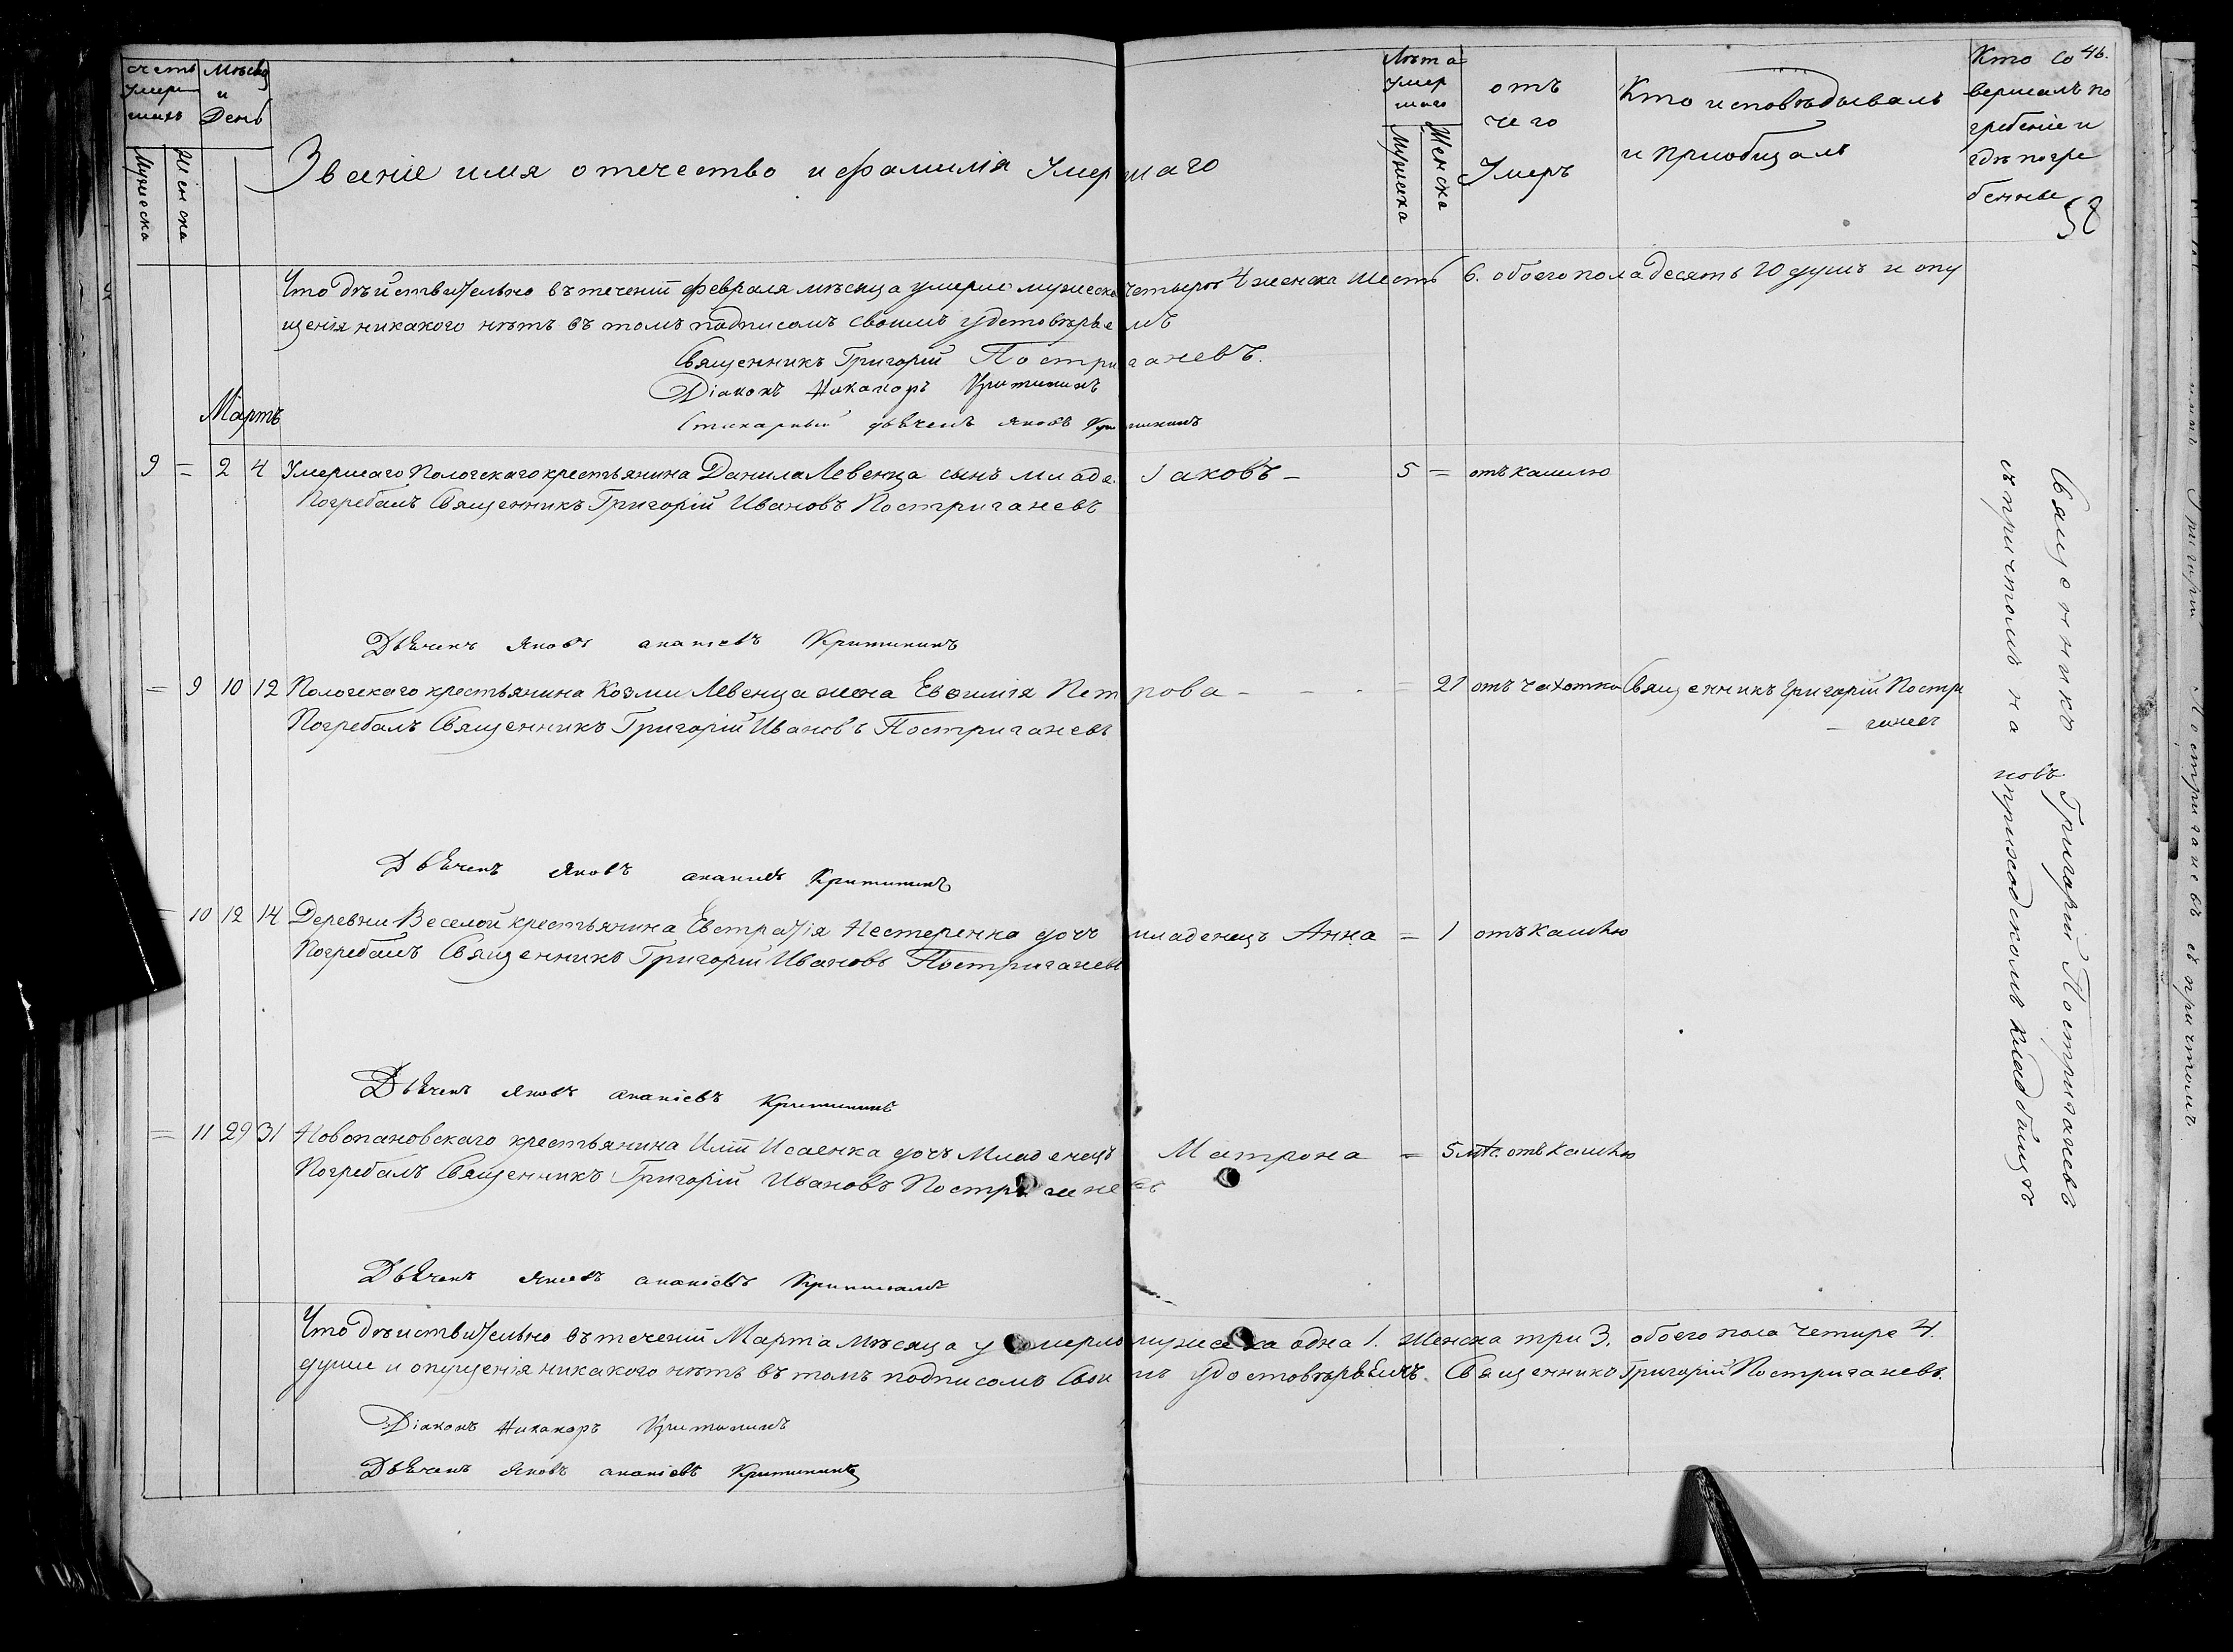 счетъ умер шихъ
Мѣсяцъ и День
Мужеска
Женска
Званіе имя отечество и фамилія Умершаго
Лѣта умер шаго
Мужеска
Женска
отъ чего Умеръ
Кто исповѣдывалъ и пріобщалъ
Кто со
46.
вершалъ по
гребеніе и
гдѣ погре
бенные
52
Что дѣйствительно въ теченіи февраля мѣсяца умерло мужеска четыре 4 женска шесть 6. обоего пола десять 10 душъ и опу
щенія никакого нѣтъ въ томъ подписомъ своимъ удстовѣрьемъ
Священникъ Григорій Постриганевъ.
Діаконъ Никаноръ Критининъ
Стихарный дьячекъ Яковъ Критининъ
Мартъ
9 = 2 4 Умершаго Пологскаго крестьянина Данила Левенца сынъ младе. Іаковъ - 5 = отъ кашлю
Погребалъ Священникъ Григорій Ивановъ Постриганевъ
Дьячекъ Яковъ ананіевъ Критининъ
= 9 10 12 Пологскаго крестьянина Козми Левенца жена Евѳимія Петрова - - - = 21 отъ чахотки Священникъ Григорій Постри
ганев
Погребалъ Священникъ Григорій Ивановъ Постриганевъ
Дьячекъ Яковъ ананіевъ Критининъ
= 10 12 14 Деревни Веселой крестьянина Евстратія Нестеренка дочь младенецъ Анна = 1 отъ кашлю
Погребалъ Священникъ Григорій Ивановъ Постриганевъ
Дьячекъ Яковъ ананіевъ Критининъ
= 11 29 31 Новопановскаго крестьянина Иліи Исаенка дочь Младенецъ Матрона = 5 мѣс. отъ кашлю
Погребалъ Священникъ Григорій Ивановъ Постриганевъ
Дьячекъ Яковъ ананіевъ Критининъ
Что дѣйствительно въ теченіи Марта мѣсяца умерло мужеска одна 1. Женска три 3. обоего пола четире 4.
души и опущенія никакого нѣтъ въ томъ подписомъ своимъ удостовѣрьемъ. Священникъ Григорій Постриганевъ.
Діаконъ Никаноръ Критининъ
Дьячекъ Яковъ ананіевъ Критининъ
Священникъ Григорій Постриганевъ
съ причтомъ на приходскомъ кладбищѣ
Григорій Постриганевъ съ причтомъ